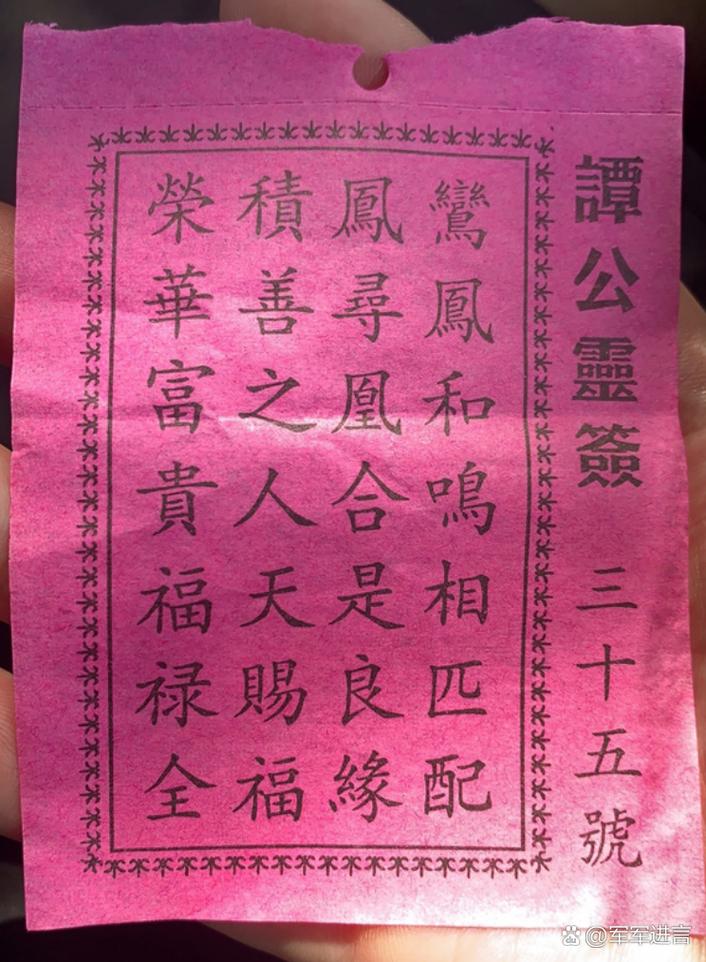 譚公靈簽 三十五號
鸞鳳和鳴相匹配
鳳尋凰合是良緣
積善之人天賜福
榮華富貴福禄全
Bai度 @军军进言